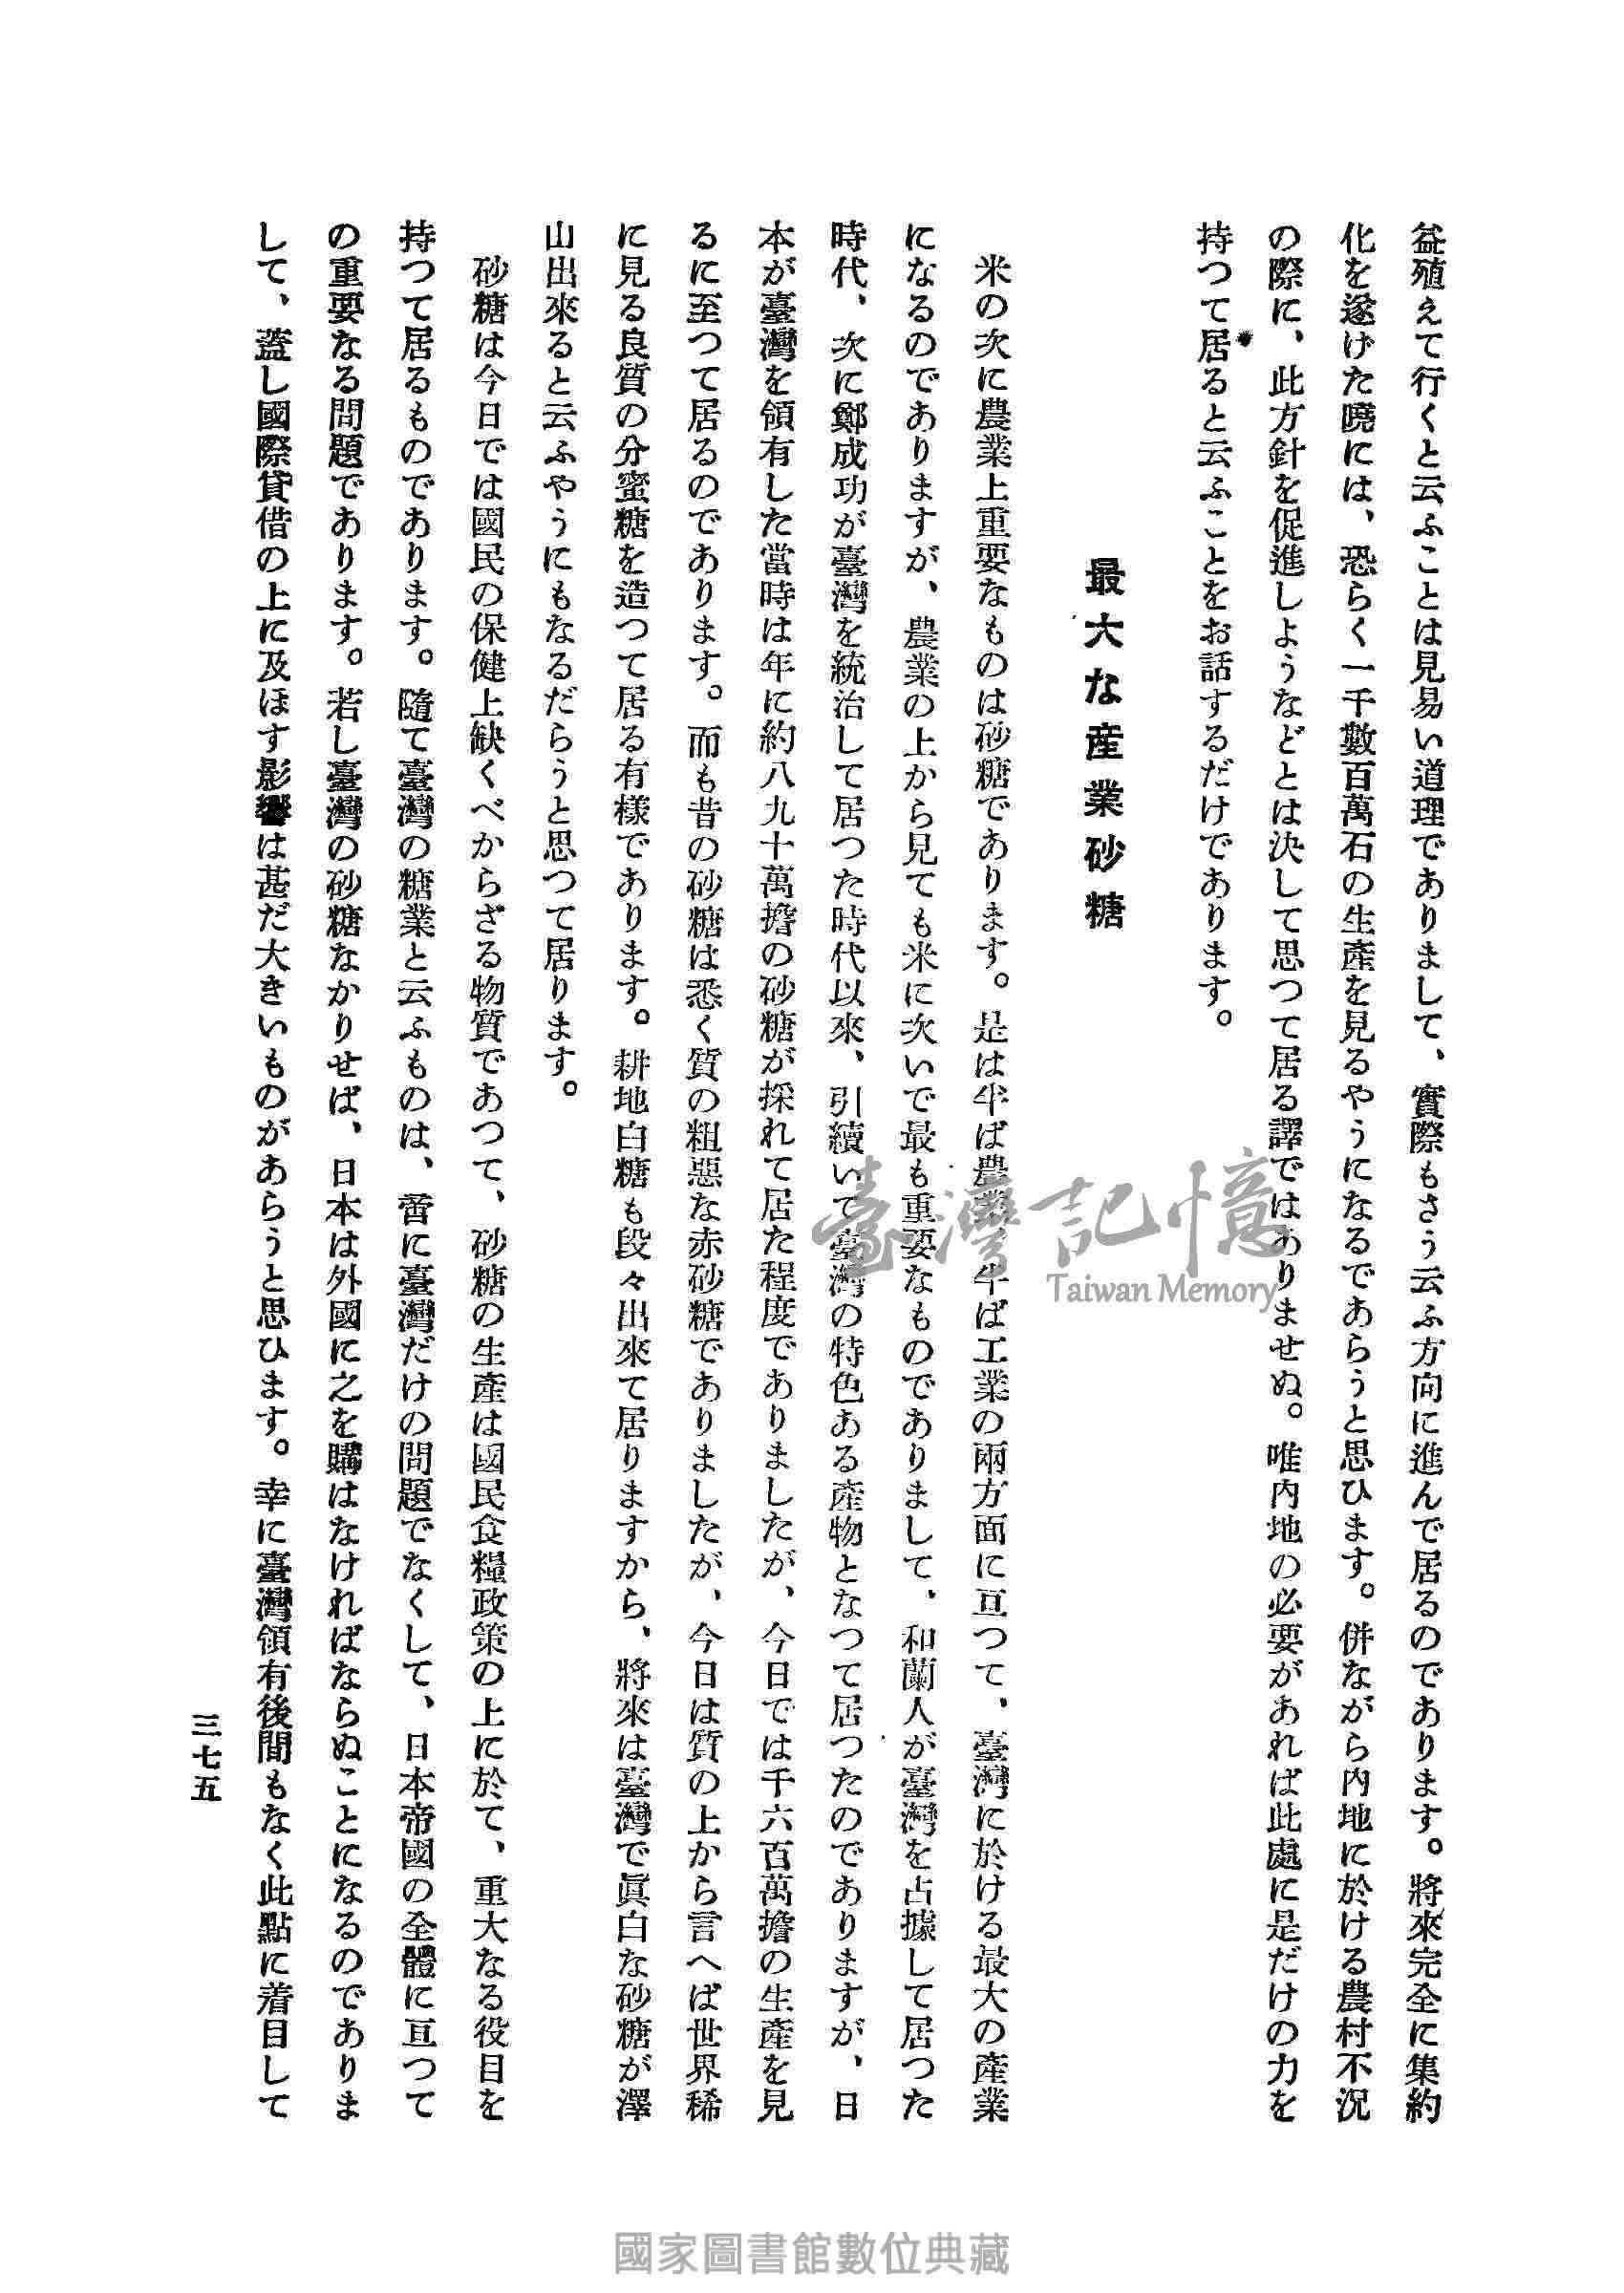 益殖えて行くと云ふことは見易い道理でありまして、實際もさう云ふ方向に進んで居るのであります。將來完全に集約
化を遂げた曉には、恐らく一千數百萬石の生產を見るやうになるであらうと思ひます。併ながら内地に於ける農村不況
の際に、此方針を促進しようなどとは決して思つて居る譯ではありませぬ。唯内地の必要があれば此處に是だけの力を
持つて居ると云ふことをお話するだけであります。
最大な産業砂糖
米の次に農業上重要なものは砂糖であります。是は半ば農業、半ば工業の兩方面に亙つて、臺灣に於ける最大の產業
になるのでありますが、農業の上から見ても米に次いで最も重要なものでありまして、和蘭人が臺灣を占據して居つた
時代、次に鄭成功が臺灣を統治して居つた時代以來、引續いて臺灣の特色ある產物となつて居つたのでありますが、日
本が臺灣を領有した當時は年に約八九十萬擔の砂糖が採れて居た程度でありましたが、今日では千六百萬擔の生產を見
るに至つて居るのであります。而も昔の砂糖は悉く質の粗惡な赤砂糖でありましたが、今日は質の上から言へば世界稀
に見る良質の分蜜糖を造つて居る有樣であります。耕地白糖も段々出來て居りますから、將來は臺灣で眞白な砂糖が澤
山出來ると云ふやうにもなるだらうと思つて居ります。
砂糖は今日では國民の保健上缺くべからざる物質であつて、砂糖の生產は國民食糧政策の上に於て、重大なる役目を
持つて居るものであります。隨て臺灣の糖業と云ふものは、啻に臺灣だけの問題でなくして、日本帝國の全體に亙つて
の重要なる問題であります。若し臺灣の砂糖なかりせば、日本は外國に之を購はなければならぬことになるのでありま
して、蓋し國際貸借の上に及ほす影響は甚だ大きいものがあらうと思ひます。幸に臺灣領有後間もなく此點に着目して
三七五
臺灣記憶
Taiwan Memory
國家圖書館數位典藏